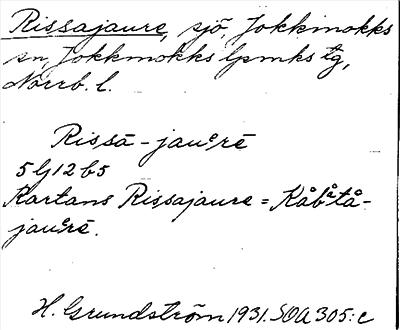 Rissajaure, sjö, Jokkmokks
sn, Jokkmokks lpmks tg,
Norrb. l.
Rissā-jauᵉrē
5 lj 12 b5
Kartans Rissajaure = Kåbᵃ̊tå-
jauᵉrē.
H. Grundström 1931. SOA 305:c